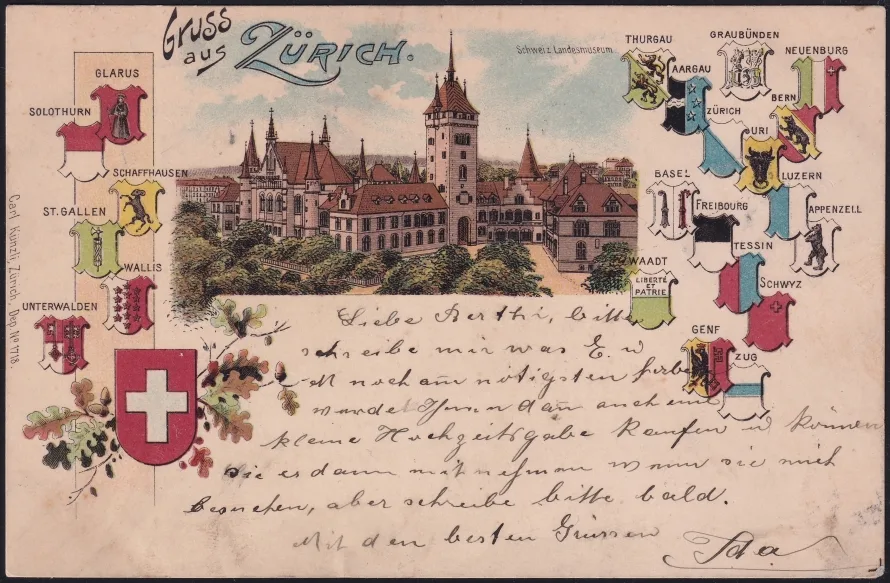 Gruss
aus
ZÜRICH.
Schweiz. Landesmuseum
GLARUS
SOLOTHURN
SCHAFFHAUSEN
ST. GALLEN
WALLIS
UNTERWALDEN
THURGAU
GRAUBÜNDEN
NEUENBURG
AARGAU
BERN
ZÜRICH
URI
LUZERN
BASEL
FREIBOURG
APPENZELL
TESSIN
WAADT
LIBERTÉ
ET
PATRIE
SCHWYZ
GENF
ZUG
Carl Künzli, Zürich, Dep. No 1718.
Liebe Berthi, bitte
schreibe mir was E. u
M noch am nötigsten
würde Ihnen dan auch eine
kleine Hochzeitsgabe kaufen u können
sie es dann mitnehmen wenn sie mich
besuchen, aber schreibe bitte bald.
Mit den besten Grüssen
Ida